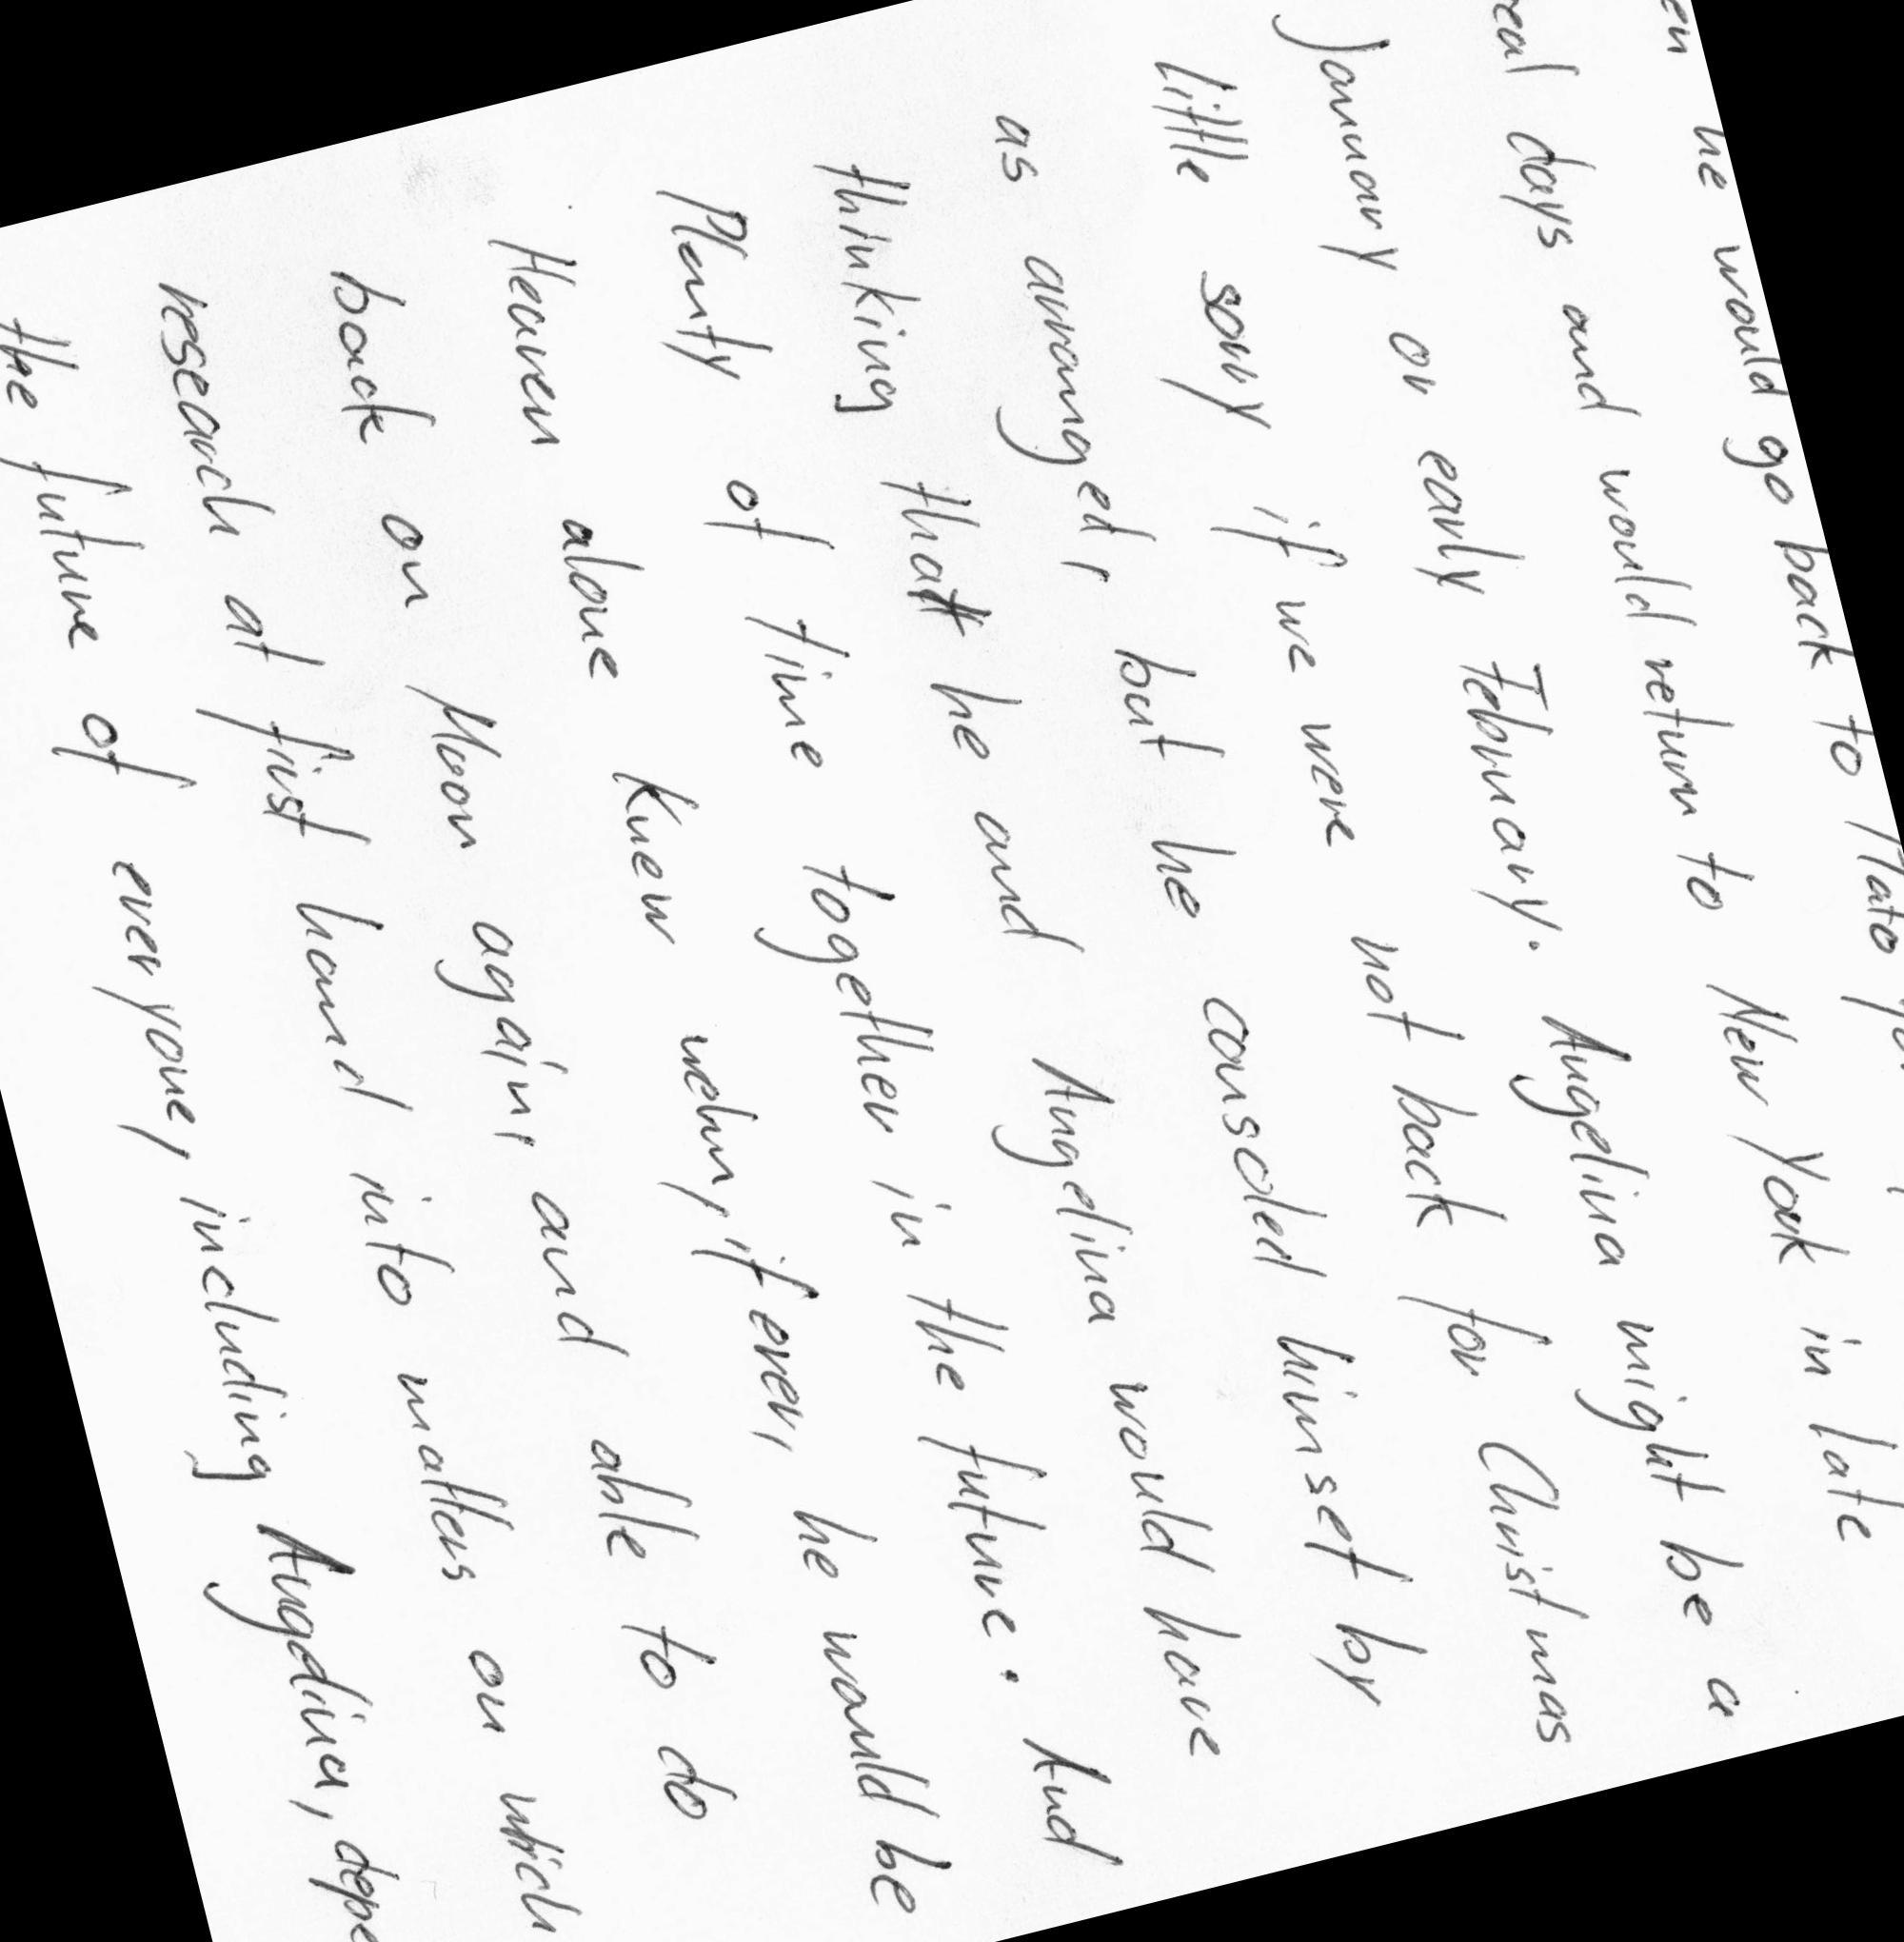 he would go back to Plato
days and would return to New York in late
January or early February. Angelina might be a
little sorry if we were not back for Christmas
as arranged, but he consoled himself by
thinking that he and Angelina would have
Plenty of time together in the future. And
Heaven alone knew when, if ever, he would be
back on Moon again, and able to do
research at first hand into matters on which
the future of everyone, including Angelina,